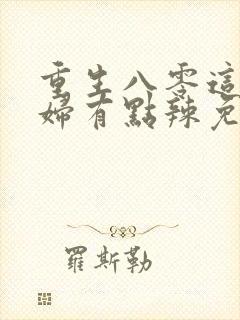 重生八零這
婦有點辣免
羅斯勒